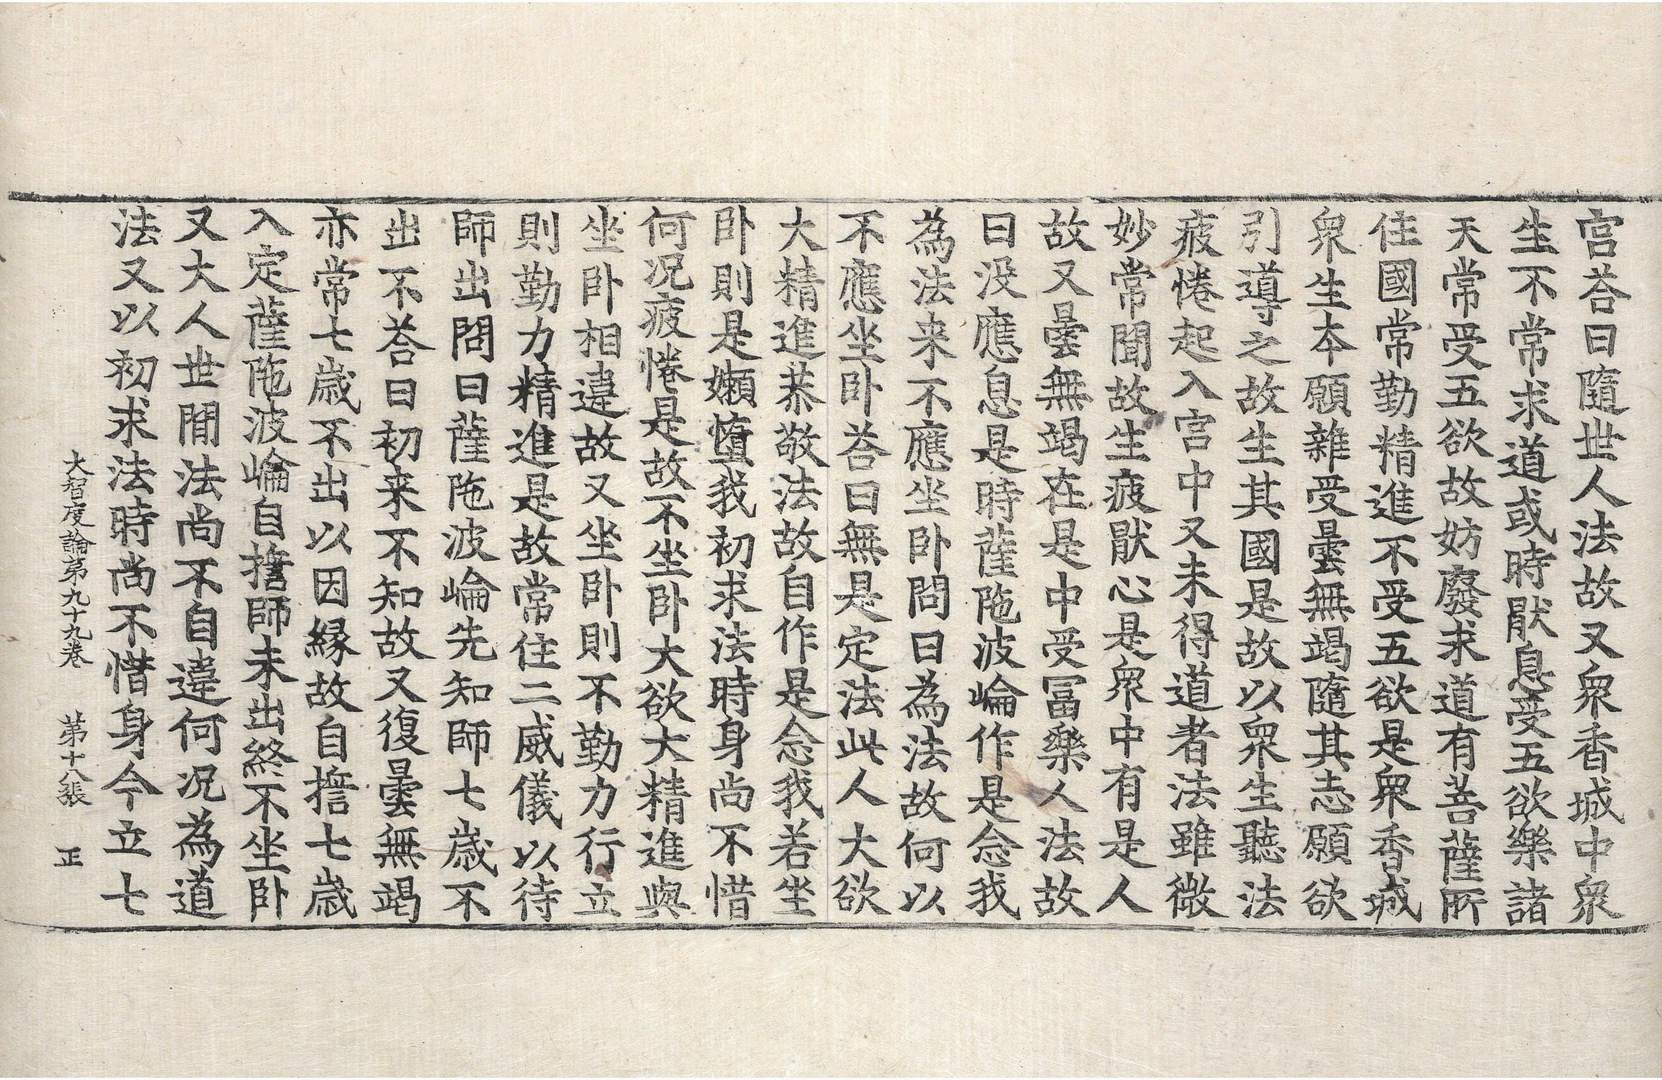 宫荅曰隨世人法故又衆香城中衆
生不常求道或時猒息受五欲樂諸
天常受五欲故妨廢求道有菩薩所
住國常勤精進不受五欲是衆香城
衆生夲願雜受曇無竭隨其志願欲
引導之故生其國是故以衆生聽法
疲惓起入宫中又未得道者法雖微
妙常聞故生疲猒心是衆中有是人
故又曇無竭在是中受冨樂人法故
日没應息是時薩陁波崘作是念我
為法来不應坐卧問曰為法故何以
不應坐卧荅曰無是定法此人大欲
大精進恭敬法故自作是念我若坐
卧則是嬾墮我初求法時身尚不惜
何况疲惓是故不坐卧大欲大精進與
坐卧相違故又坐卧則不勤力行立
則勤力精進是故常住二威儀以待
師出問曰薩陁波崘先知師七歳不
出不荅曰初来不知故又復曇無竭
亦常七歳不出以因縁故自擔七歳
入定薩陁波崘自擔師未出終不坐卧
又大人世間法尚不自違何况為道
法又以初求法時尚不惜身今立七
大智度論第九十九卷 第十八張 正